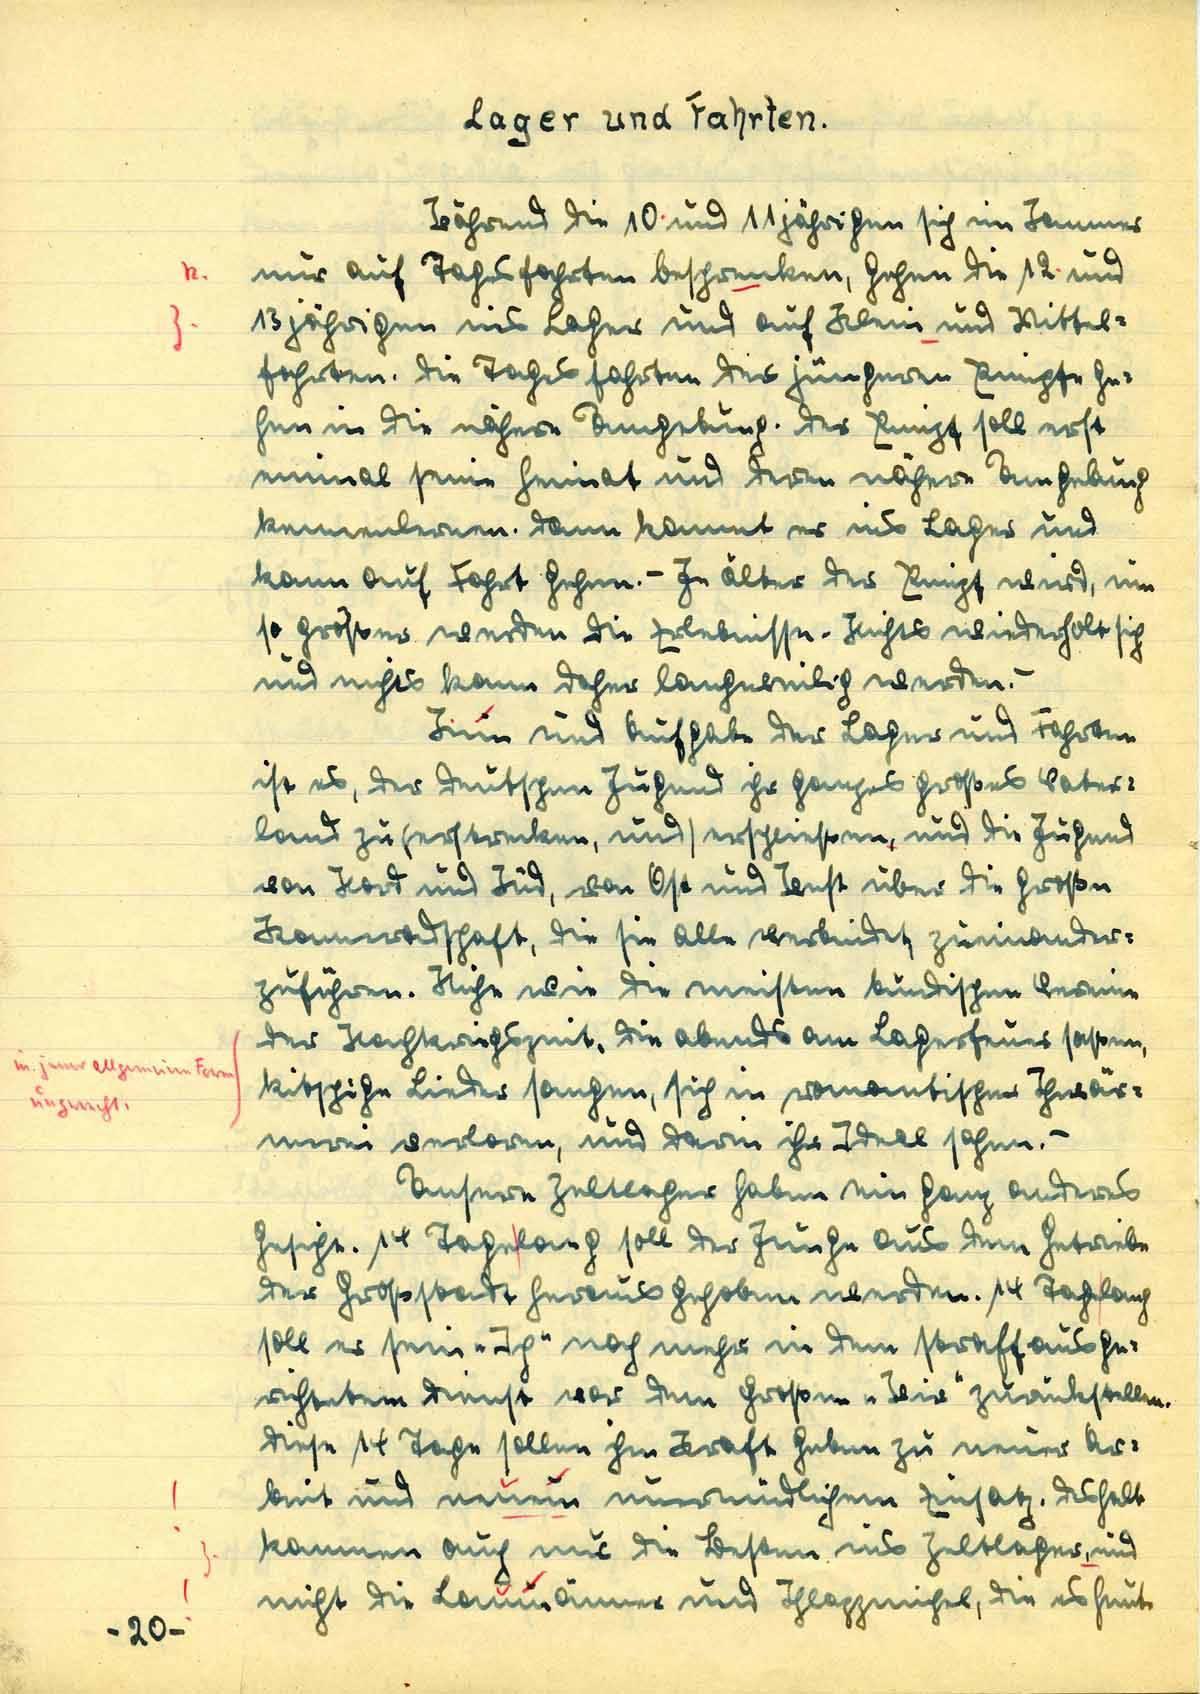 Lager und Fahrten.
Während die 10 und 11jährigen sich im Sommer
R.
nur auf Tagesfahrten beschrenken, gehen die 12 und
Z.
13jährigen ins Lager und auf Klein und Mittel=
fahrten. Die Tagesfahrten der jüngeren Pimpfe ge=
hen in die nähere Umgebung. Der Pimpf soll erst
einmal seine Heimat und deren nähere Umgebung
kennenlernen. Dann kommt er ins Lager und
kann auf Fahrt gehen.- Je älter der Pimpf wird, um
so größer werden die Erlebnisse. Nichts wiederholt sich
und nichts kann daher langweilig werden.-
Sinn und Aufgabe der Lager und Fahrten
ist es, der deutschen Jugend ihr ganzes großes Vater=
land zu (erstrecken, und) erschließen, und die Jugend
von Nord und Süd, von Ost und West über die große
Kameradschaft, die sie alle verbindet, zueinander=
zuführen. Nicht wie die meisten bündischen Vereine
der Nachkriegszeit, die abends am Lagerfeuer saßen,
in jener allgemeinen Form
kitschige Lieder sangen, sich in romantischer Schwär=
ungerecht.
merei verloren, und darin ihr Ideal sahen.-
Unsere Zeltlager haben ein ganz anderes
Gesicht. 14 Tage lang soll der Junge aus dem Getriebe
der Großstadt herausgehoben werden. 14 Tage lang
soll er sein „Ich“ noch mehr in dem straff ausge=
richtetem Dienst vor dem großen „Wir“ zurückstellen.
Diese 14 Tage sollen ihm Kraft geben zu neuer Ar=
beit und neuem unermüdlichem Einsatz. Deshalb
Z.
kommen auch nur die Besten ins Zeltlager, und
nicht die Laumänner und Schlappmichel, die es heut
-20-